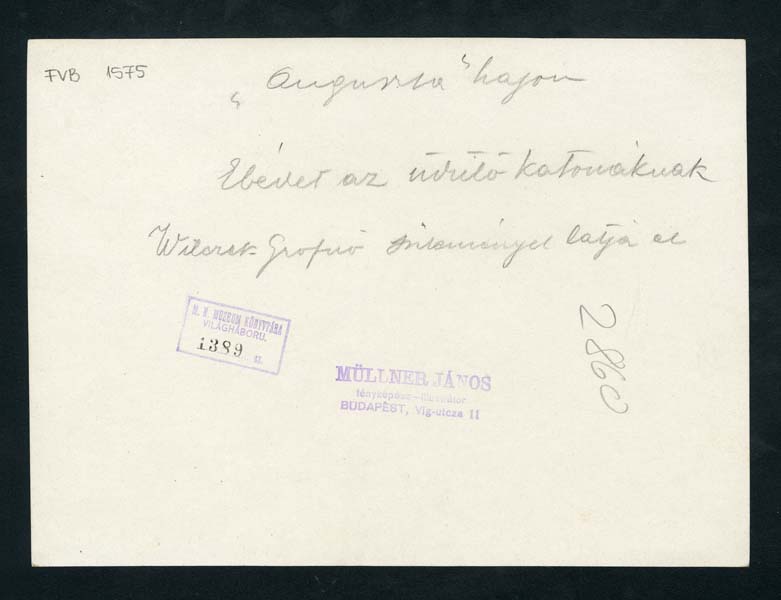 FVB 1575
„Auguszta" hajon
Ebédet az üdülő katonáknak
Wilczek Grofnő süteménnyel látja el
M. N. MUZEUM KÖNYVTÁRA
VILÁGHÁBORU.
1389 sz.
MÜLLNER JÁNOS
fényképész-illusztrátor
BUDAPEST, Vig-utcza 11
2860